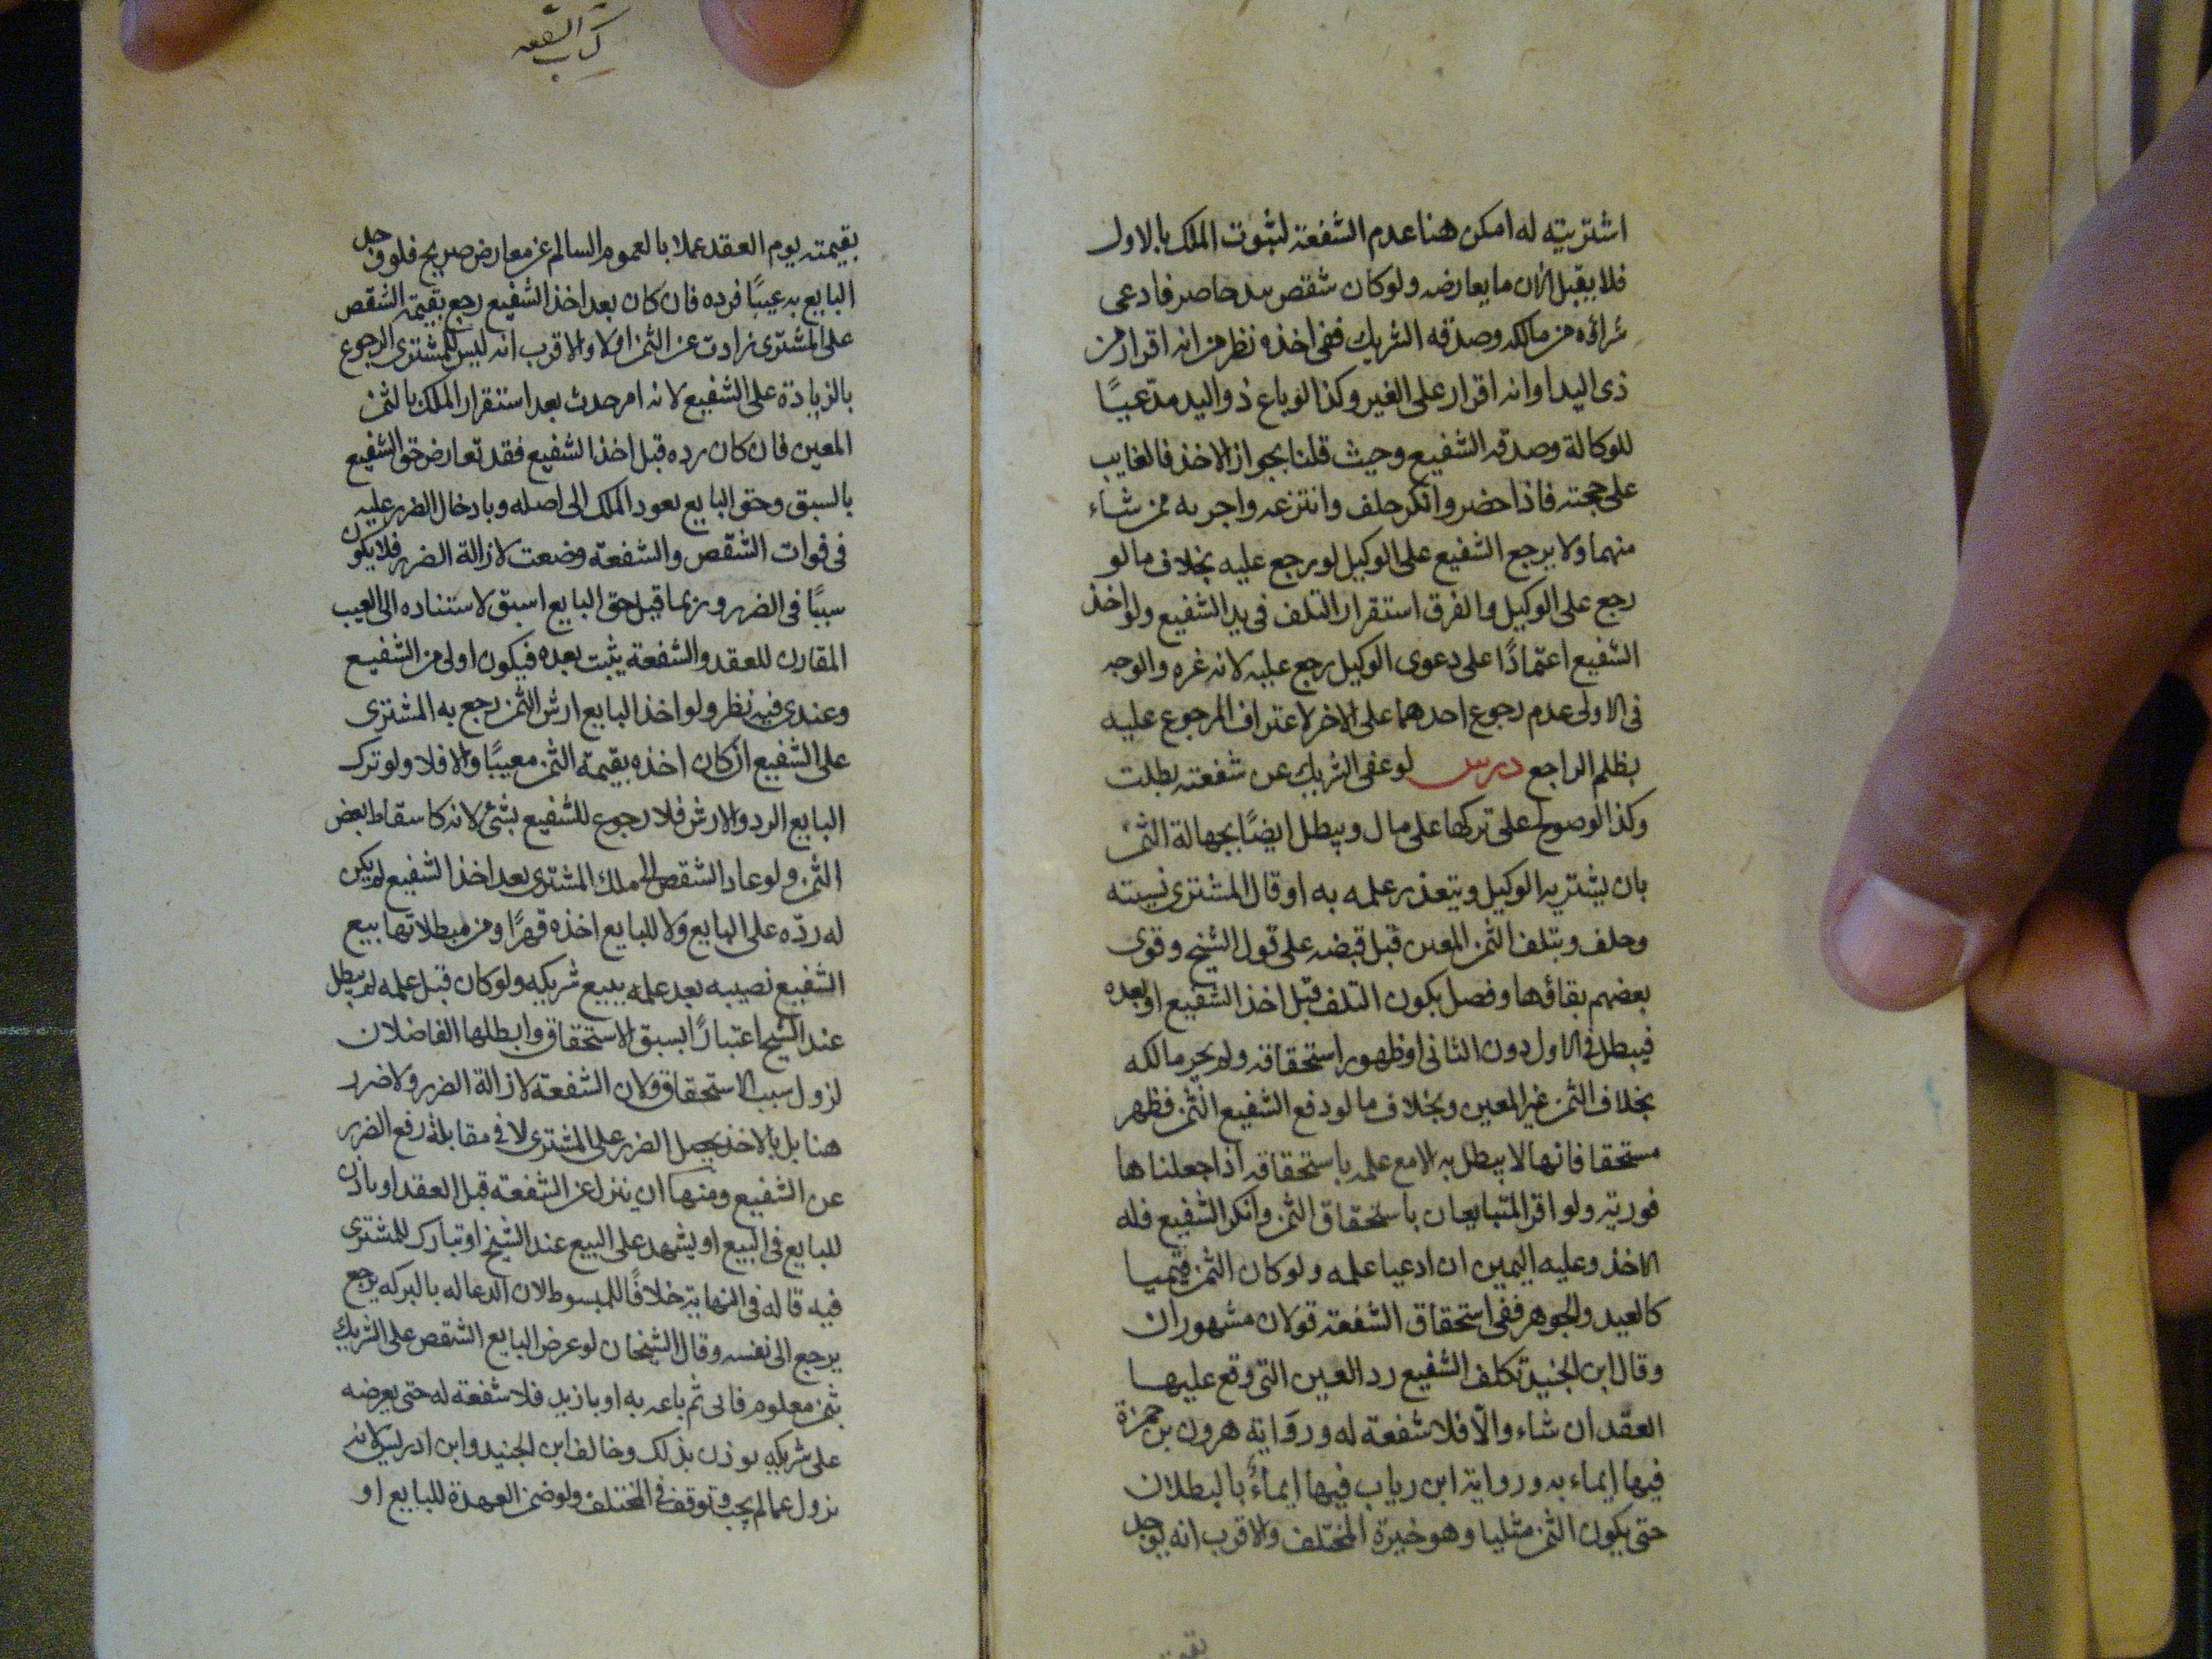 اشتريته له امكن هنا عدم الشفعة لثبوت الملك بالاول
فلا يقبل الان ما يعارضه ولو كان شقص بيد حاضر فادعى
شراؤه من مالكه وصدقه الشريك ففى اخذه نظر من انه اقرار من
ذى اليد او انه اقرار على الغير وكذا لو باع ذو اليد مدعيًا
للوكالة وصدقه الشفيع وحيث قلنا بجواز الاخذ فالغايب
على حجته فاذا حضر وانكر حلف وانتزعه واجر به ممن شاء
منهما ولا يرجع الشفيع على الوكيل لو رجع عليه بخلاف ما لو
رجع على الوكيل والفرق استقرار التلف فى يد الشفيع ولو اخذ
الشفيع اعتمادًا على دعوى الوكيل رجع عليه لانه غره والوجه
فى الاولى عدم رجوع احدهما على الاخر لاعتراف المرجوع عليه
بظلم الراجع درس لو عفى الشريك عن شفعته بطلت
وكذا لو صولح على تركها على مال ويبطل ايضًا بجهالة الثمن
بان يشتريه الوكيل ويتعذر علمه به او قال المشترى نسيته
وحلف وبتلف الثمن المعين قبل قبضه على قول الشيخ وقوى
بعضهم بقاؤها وفصل بكون التلف قبل اخذ الشفيع او بعده
فيبطل فى الاول دون الثانى او ظهور استحقاقه ولم يجز مالكه
بخلاف الثمن غير المعين وبخلاف ما لو دفع الشفيع الثمن فظهر
مستحقا فانها لا يبطل به الا مع علمه باستحقاقه اذا جعلناها
فورية ولو اقر المتبايعان باستحقاق الثمن وانكر الشفيع فله
الاخذ وعليه اليمين ان ادعيا علمه ولو كان الثمن قيميا
كالعبد والجوهر ففى استحقاق الشفعة قولان مشهوران
وقال ابن الجنيد تكلف الشفيع رد العين التى وقع عليها
العقد ان شاء والّا فلا شفعة له ورواية هرون بن حمزة
فيها ايماء به ورواية ابن رياب فيها ايماءٌ بالبطلان
حتى يكون الثمن مثليا وهو خيرة المختلف والاقرب انه يوجد
كتاب الشفعه
بقيمته يوم العقد عملا بالعموم السالم عن معارض صريح فلو وجد
البايع به عيبًا فرده فان كان بعد اخذ الشفيع رجع بقيمة الشقص
على المشترى زادت عن الثمن ام لا والاقرب انه ليس للمشترى الرجوع
بالزيادة على الشفيع لانه امر حدث بعد استقرار الملك بالثمن
المعين فان كان رده قبل اخذ الشفيع فقد تعارض حق الشفيع
بالسبق وحق البايع بعود الملك الى اصله وبادخال الضرر عليه
فى فوات الشقص والشفعة وضعت لازالة الضرر فلا يكون
سببًا فى الضرر وربما قيل حق البايع اسبق لاستناده الى العيب
المقارن للعقد والشفعة يثبت بعده فيكون اولى من الشفيع
وعندى فيه نظر ولو اخذ البايع ارش الثمن رجع به المشترى
على الشفيع ان كان اخذه بقيمة الثمن معيبًا والا فلا ولو ترك
البايع الرد والارش فلا رجوع للشفيع بشئ لانه كاسقاط بعض
الثمن ولو عاد الشقص الى ملك المشترى بعد اخذ الشفيع لم يكن
له ردّه على البايع ولا للبايع اخذه قهرًا ومن مبطلاتها بيع
الشفيع نصيبه بعد علمه ببيع شريكه ولو كان قبل علمه لم يبطل
عند الشيخ اعتبارًا بسبق الاستحقاق وابطلها الفاضلان
لزول سبب الاستحقاق ولان الشفعة لازالة الضرر ولا ضرر
هنا بل بالاخذ يحصل الضرر على المشترى لا فى مقابلة رفع الضرر
عن الشفيع ومنها ان ينزل عن الشفعة قبل العقد او باذن
للبايع فى البيع او يشهد على البيع عند الشيخ او تبارك للمشترى
فيه قاله فى النهاية خلافًا للمبسوط لان الدعا له بالبركه يرجع
يرجع الى نفسه وقال الشيخان لو عرض البايع الشقص على الشريك
بثمن معلوم فابى ثم باعه به او بازيد فلا شفعة له حتى يعرضه
على شريكه يوذن بذلك وخالف ابن الجنيد وابن ادريس لانه
نزول عما لم يجب وتوقف فى المختلف ولو ضمن العهدة للبايع او